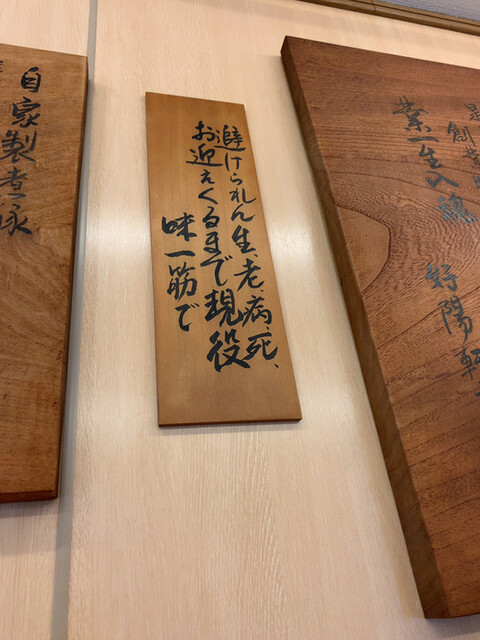 是
創業
業一生入魂 好陽軒
避けられん生、老、病、死、
お迎えくるまで現役
味一筋で
自家製煮